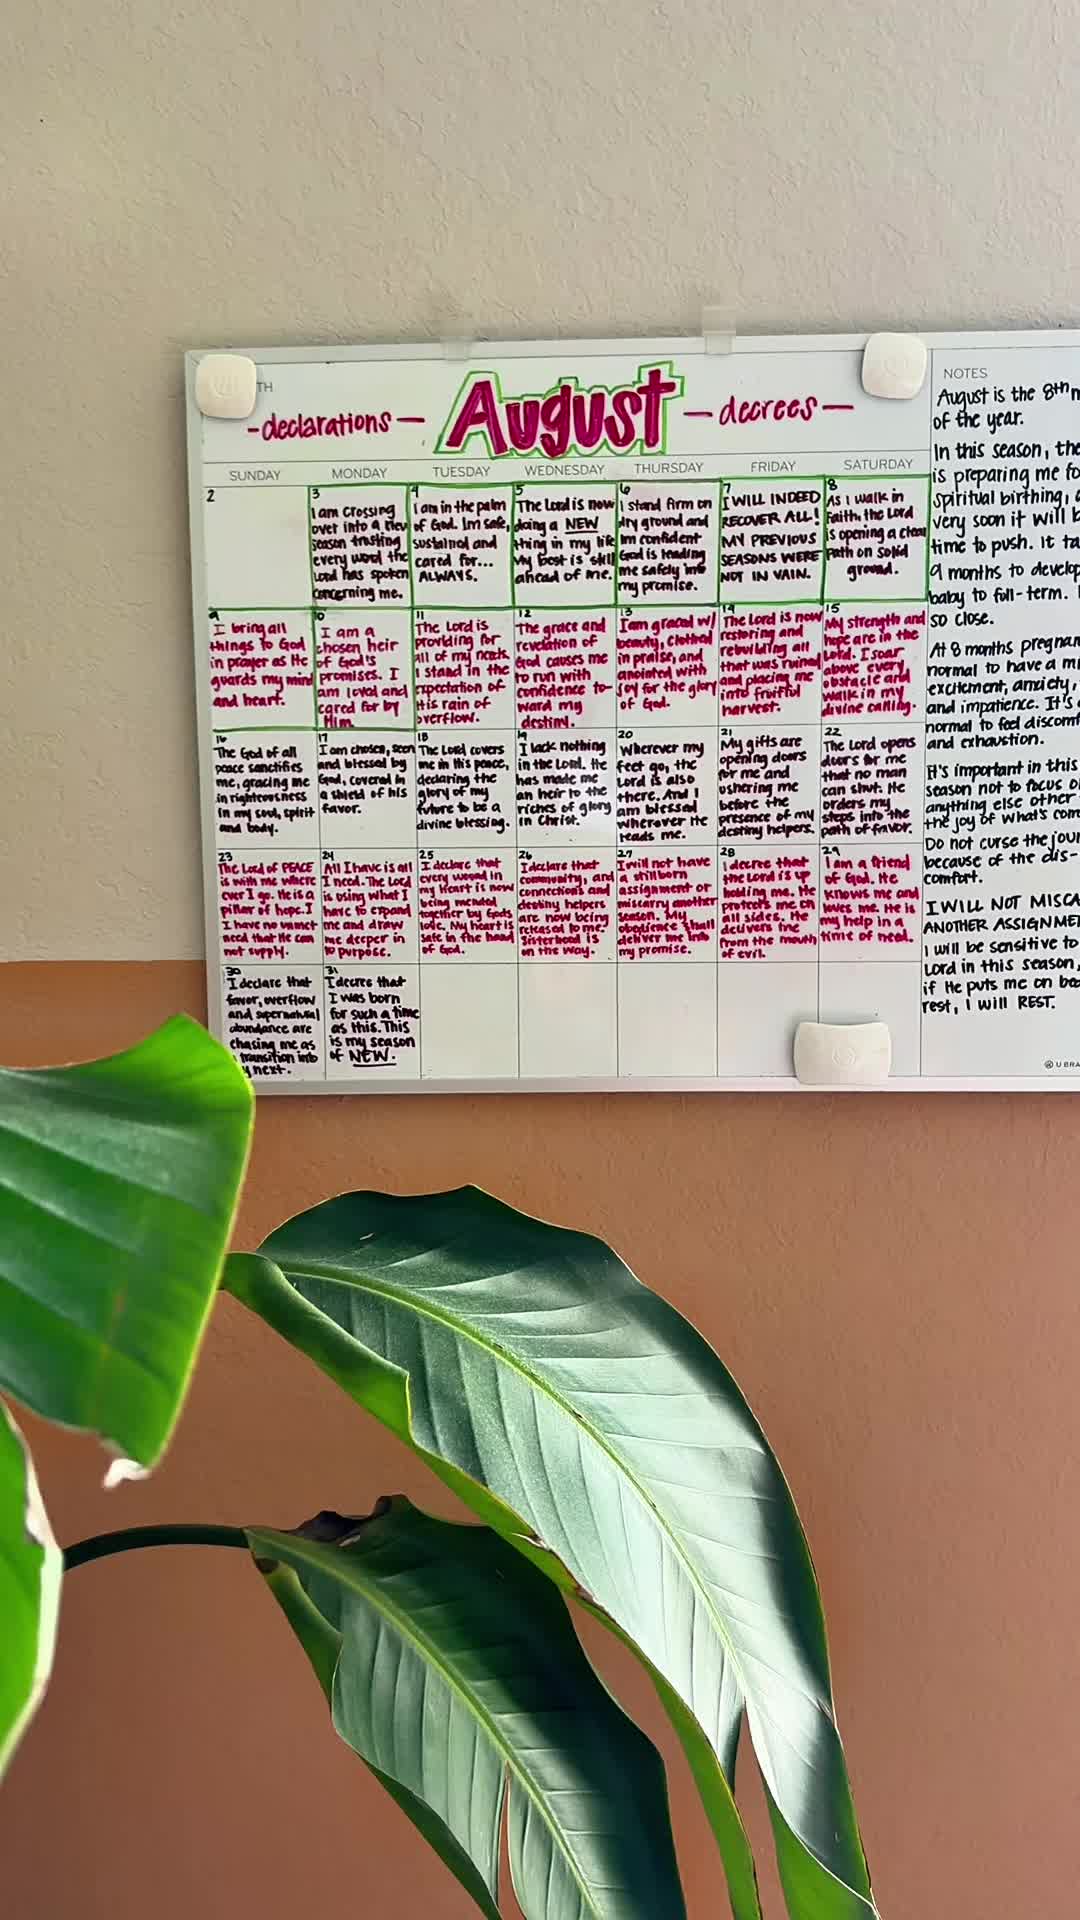 TH
- declarations -
August
- decrees -
SUNDAY MONDAY TUESDAY WEDNESDAY THURSDAY FRIDAY SATURDAY
2
3
I am crossing
over into a new
season trusting
every word the
Lord has spoken
concerning me.
4
I am in the palm
of God. Im safe,
sustained and
cared for...
ALWAYS.
5
The Lord is now
doing a NEW
thing in my life
My best is still
ahead of me.
6
I stand firm on
dry ground and
Im confident
God is leading
me safely into
my promise.
7
I WILL INDEED
RECOVER ALL!
MY PREVIOUS
SEASONS WERE
NOT IN VAIN.
8
As I walk in
faith, the Lord
is opening a clear
path on solid
ground.
9
I bring all
things to God
in prayer as He
guards my mind
and heart.
10
I am a
chosen heir
of God's
promises. I
am loved and
cared for by
Him.
11
The Lord is
providing for
all of my needs
I stand in the
expectation of
His rain of
overflow.
12
The grace and
revelation of
God causes me
to run with
confidence to-
ward my
destiny.
13
I am graced w/
beauty, clothed
in praise, and
anointed with
joy for the glory
of God.
14
The Lord is now
restoring and
rebuilding all
that was ruined
and placing me
into fruitful
harvest.
15
My strength and
hope are in the
Lord. I soar
above every
obstacle and
walk in my
divine calling.
16
The God of all
peace sanctifies
me, gracing me
in righteousness
in my soul, spirit
and body.
17
I am chosen, seen
and blessed by
God, covered in
a shield of his
favor.
18
The Lord covers
me in His peace,
declaring the
glory of my
future to be a
divine blessing.
19
I lack nothing
in the Lord. He
has made me
an heir to the
riches of glory
in Christ.
20
Wherever my
feet go, the
Lord is also
there. And I
am blessed
wherever He
leads me.
21
My gifts are
opening doors
for me and
ushering me
before the
presence of my
destiny helpers.
22
The Lord opens
doors for me
that no man
can shut. He
orders my
steps into the
path of favor.
23
The Lord of PEACE
is with me where
ever I go. He is a
pillar of hope. I
I have no unmet
need that He can
not supply.
24
All I have is all
I need. The Lord
is using what I
have to expand
me and draw
me deeper in
to purpose.
25
I declare that
every wound in
my heart is now
being mended
together by Gods
love. My heart is
safe in the hand
of God.
26
I declare that
community, and
connections and
destiny helpers
are now being
released to me.
Sisterhood is
on the way.
27
I will not have
a stillborn
assignment or
miscarry another
season. My
obedience shall
deliver me into
my promise.
28
I decree that
the Lord is up
holding me. He
protects me on
all sides. He
delivers me
from the mouth
of evil.
29
I am a friend
of God. He
knows me and
loves me. He is
my help in a
time of need.
30
I declare that
favor, overflow
and supernatural
abundance are
chasing me as
I transition into
next.
31
I decree that
I was born
for such a time
as this. This
is my season
of NEW.
NOTES
August is the 8th m
of the year.
In this season, the
is preparing me fo
spiritual birthing, a
very soon it will b
time to push. It ta
9 months to develop
baby to full-term.
so close.
At 8 months pregnan
normal to have a mi
excitement, anxiety,
and impatience. It's
normal to feel discomf
and exhaustion.
It's important in this
season not to focus on
anything else other
the joy of what's com
Do not curse the jour
because of the dis-
comfort.
I WILL NOT MISCA
ANOTHER ASSIGNME
I will be sensitive to
Lord in this season,
if He puts me on bed
rest, I will REST.
U BRA